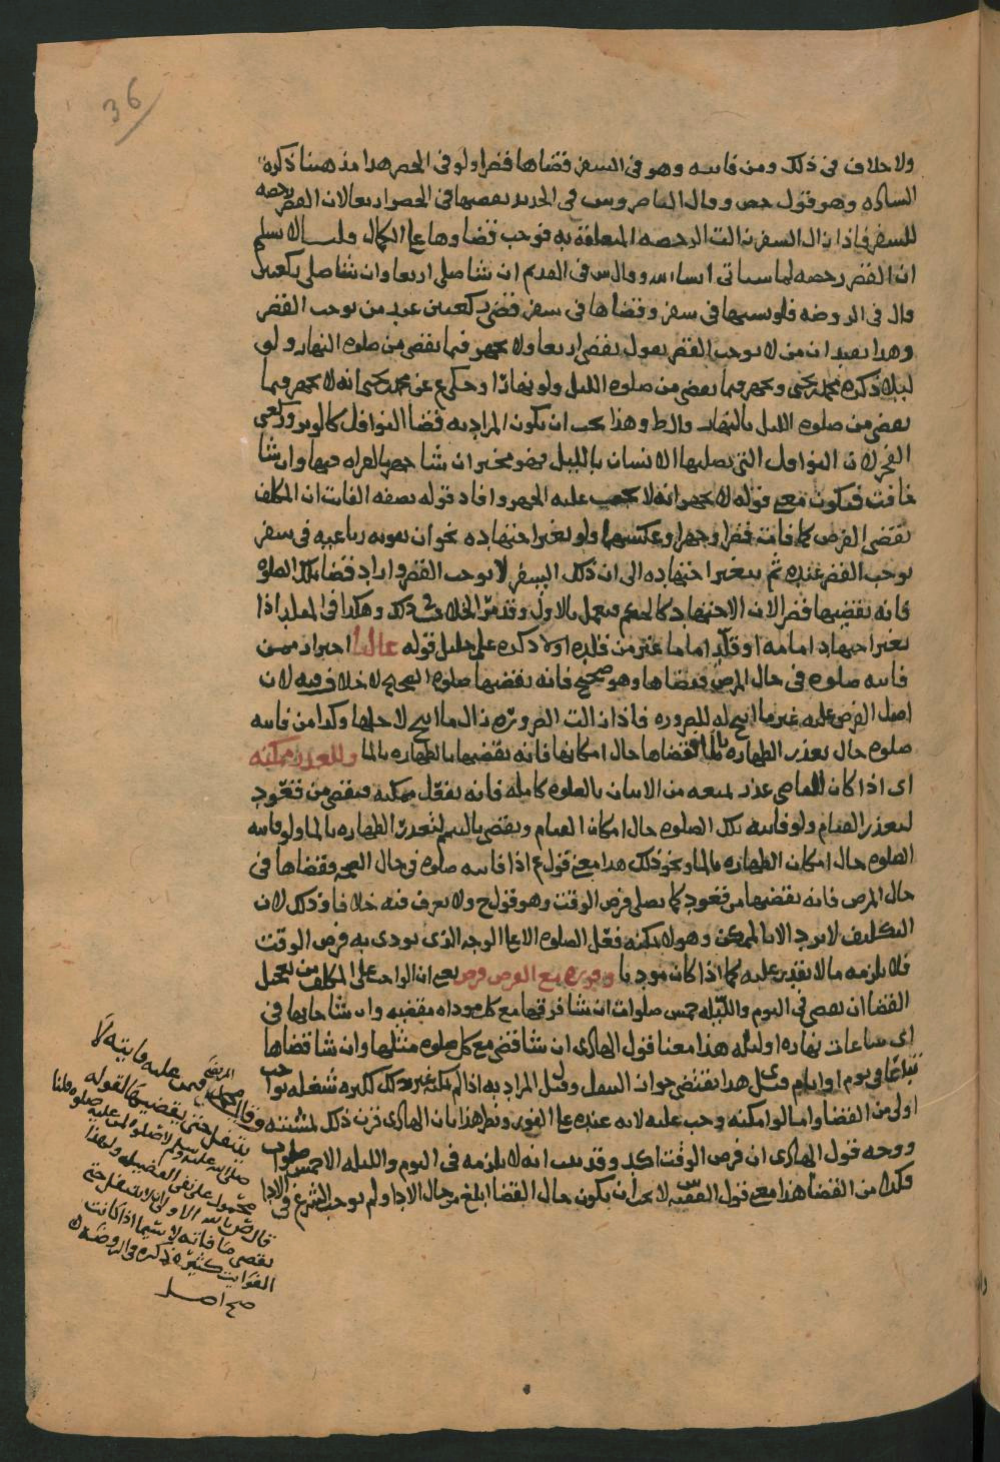 36
ولا خلاف في ذلك ومن فاتته وهو في السفر قضاها قصرا ولو في الحضر هذا مذهبنا ذكره
السادة وهو قول حص وقال الناصر وش في الجديد يقضيها في الحضر اربعا لان القصر رخصه
للسفر فاذا زال السفر زالت الرخصه المتعلقة به فوجب قضاوها على الكمال قلنا لا نسلم
ان القصر رخصه لما سياتي ان شاء الله وقال ش في القديم ان شا صلى اربعا وان شا صلى ركعتين
قال في الروضه فلو نسيها في سفر وقضاها في سفر قضى ركعتين عند من يوجب القصر
وهذا يفيد ان من لا يوجب القصر يقول يقضي اربعا ولا يجهر فيما يقضي من صلوه النهار ولو
ليلا ذكره محمد بن يحيى ويجهر فيما يقضي من صلوه الليل ولو نهارا وحكى ع عن محمد بن يحيى انه لا يجهر فيما
يقضي من صلوه الليل بالنهار قال ط وهذا يجب ان يكون المراد به قضا النوافل كالوتر وركعتي
الفجر لان النوافل التي يصليها الانسان بالليل فهو مخير ان شا جهر بالقراه فيها وان شا
خافت فيكون معنى قوله لا يجهر انه لا يجب عليه الجهر وافاد قوله بصفه الفائت ان المكلف
يقضي الفرض كما فاته قصرا وجهرا وعكسهما ولو تغير اجتهاده نحو ان تفوته رباعيه في سفر
يوجب القصر عنده ثم يتغير اجتهاده الى ان ذلك السفر لا يوجب القصر واراد قضا تلك الصلوه
فانه يقضيها قصرا لان الاجتهاد كالحكم فيعمل بالاول وقد مر الخلاف في ذلك وهكذا في المقلد اذا
تغير اجتهاد امامه او قلد اماما غير من قلده اولا ذكره علي خليل قوله غالبا احتراز ممن
فاتته صلوه في حال المرض فقضاها وهو صحيح فانه يقضيها صلوه الصحيح لا خلاف فيه لان
اصل الفرض عليه غير ما ابيح له للضروره فاذا زالت الضروره زال ما ابيح لاجلها وكذا من فاتته
صلوه حال تعذر الطهاره بالما فقضاها حال امكانها فانه يقضيها بالطهاره بالما وللعذر ممكنه
اى اذا كان للقاضي عذر يمنعه من الاتيان بالصلوه كامله فانه يفعل ممكنه فيقضي من قعود
لتعذر القيام ولو فاتته تلك الصلوه حال امكان القيام ويقضي بالتيمم لتعذر الطهاره بالما ولو فاتته
الصلوه حال امكان الطهاره بالما ونحو ذلك هذا معنى قول ع اذا فاتته صلوه في حال الصحه وقضاها في
حال المرض فانه يقضيها من قعود كما يصلي فرض الوقت وهو قول ح ولا يعرف فيه خلافا وذلك لان
التكليف لا يرد الا بالممكن وهو لا يمكنه فعل الصلوه الا على الوجه الذى يودى به فرض الوقت
فلا يلزمه ما لا يقدر عليه كما اذا كان موديا وفوره مع الفرض فرض يعني ان الواجب على المكلف من تعجيل
القضا ان يقضي في اليوم والليله خمس صلوات ان شا فرقها مع كل موداه مقضيه وان شا جا بها في
اى ساعات نهاره او ليله هذا معنا قول الهادى ان شا قضى مع كل صلوه مثلها وان شا قضاها
تباعا في يوم او ايام قيل هذا يقتضي جواز النفل وقيل المراد به اذا لم يمكنه غير ذلك لكثره شغله بواجب
اولى من القضا واما لو امكنه وجب عليه لانه عنده على الفور ونظر هذا بان الهادى قرن ذلك لمشئته
ووجه قول الهادى ان فرض الوقت اكد وقد ثبت انه لا يلزمه في اليوم والليله الا خمس صلوات
فكذا من القضا هذا معنى قول الفقيه س لا يجب ان يكون حال القضا ابلغ من حال الادا ولم يوجب الشرع في الادا
وقال المرتضى
فيمن عليه فايته لا
يتنفل حتى يقضيها لقوله
صلى الله عليه وسلم لا صلوه لمن عليه صلوه قلنا
محمول على نفي الفضيله ولهذا
قال ص بالله الاولى ان لا يتنفل حتى
يقضي ما فاته لا سيما اذا كانت
الفوايت كثيره ذكره في الروضه
صح اصل